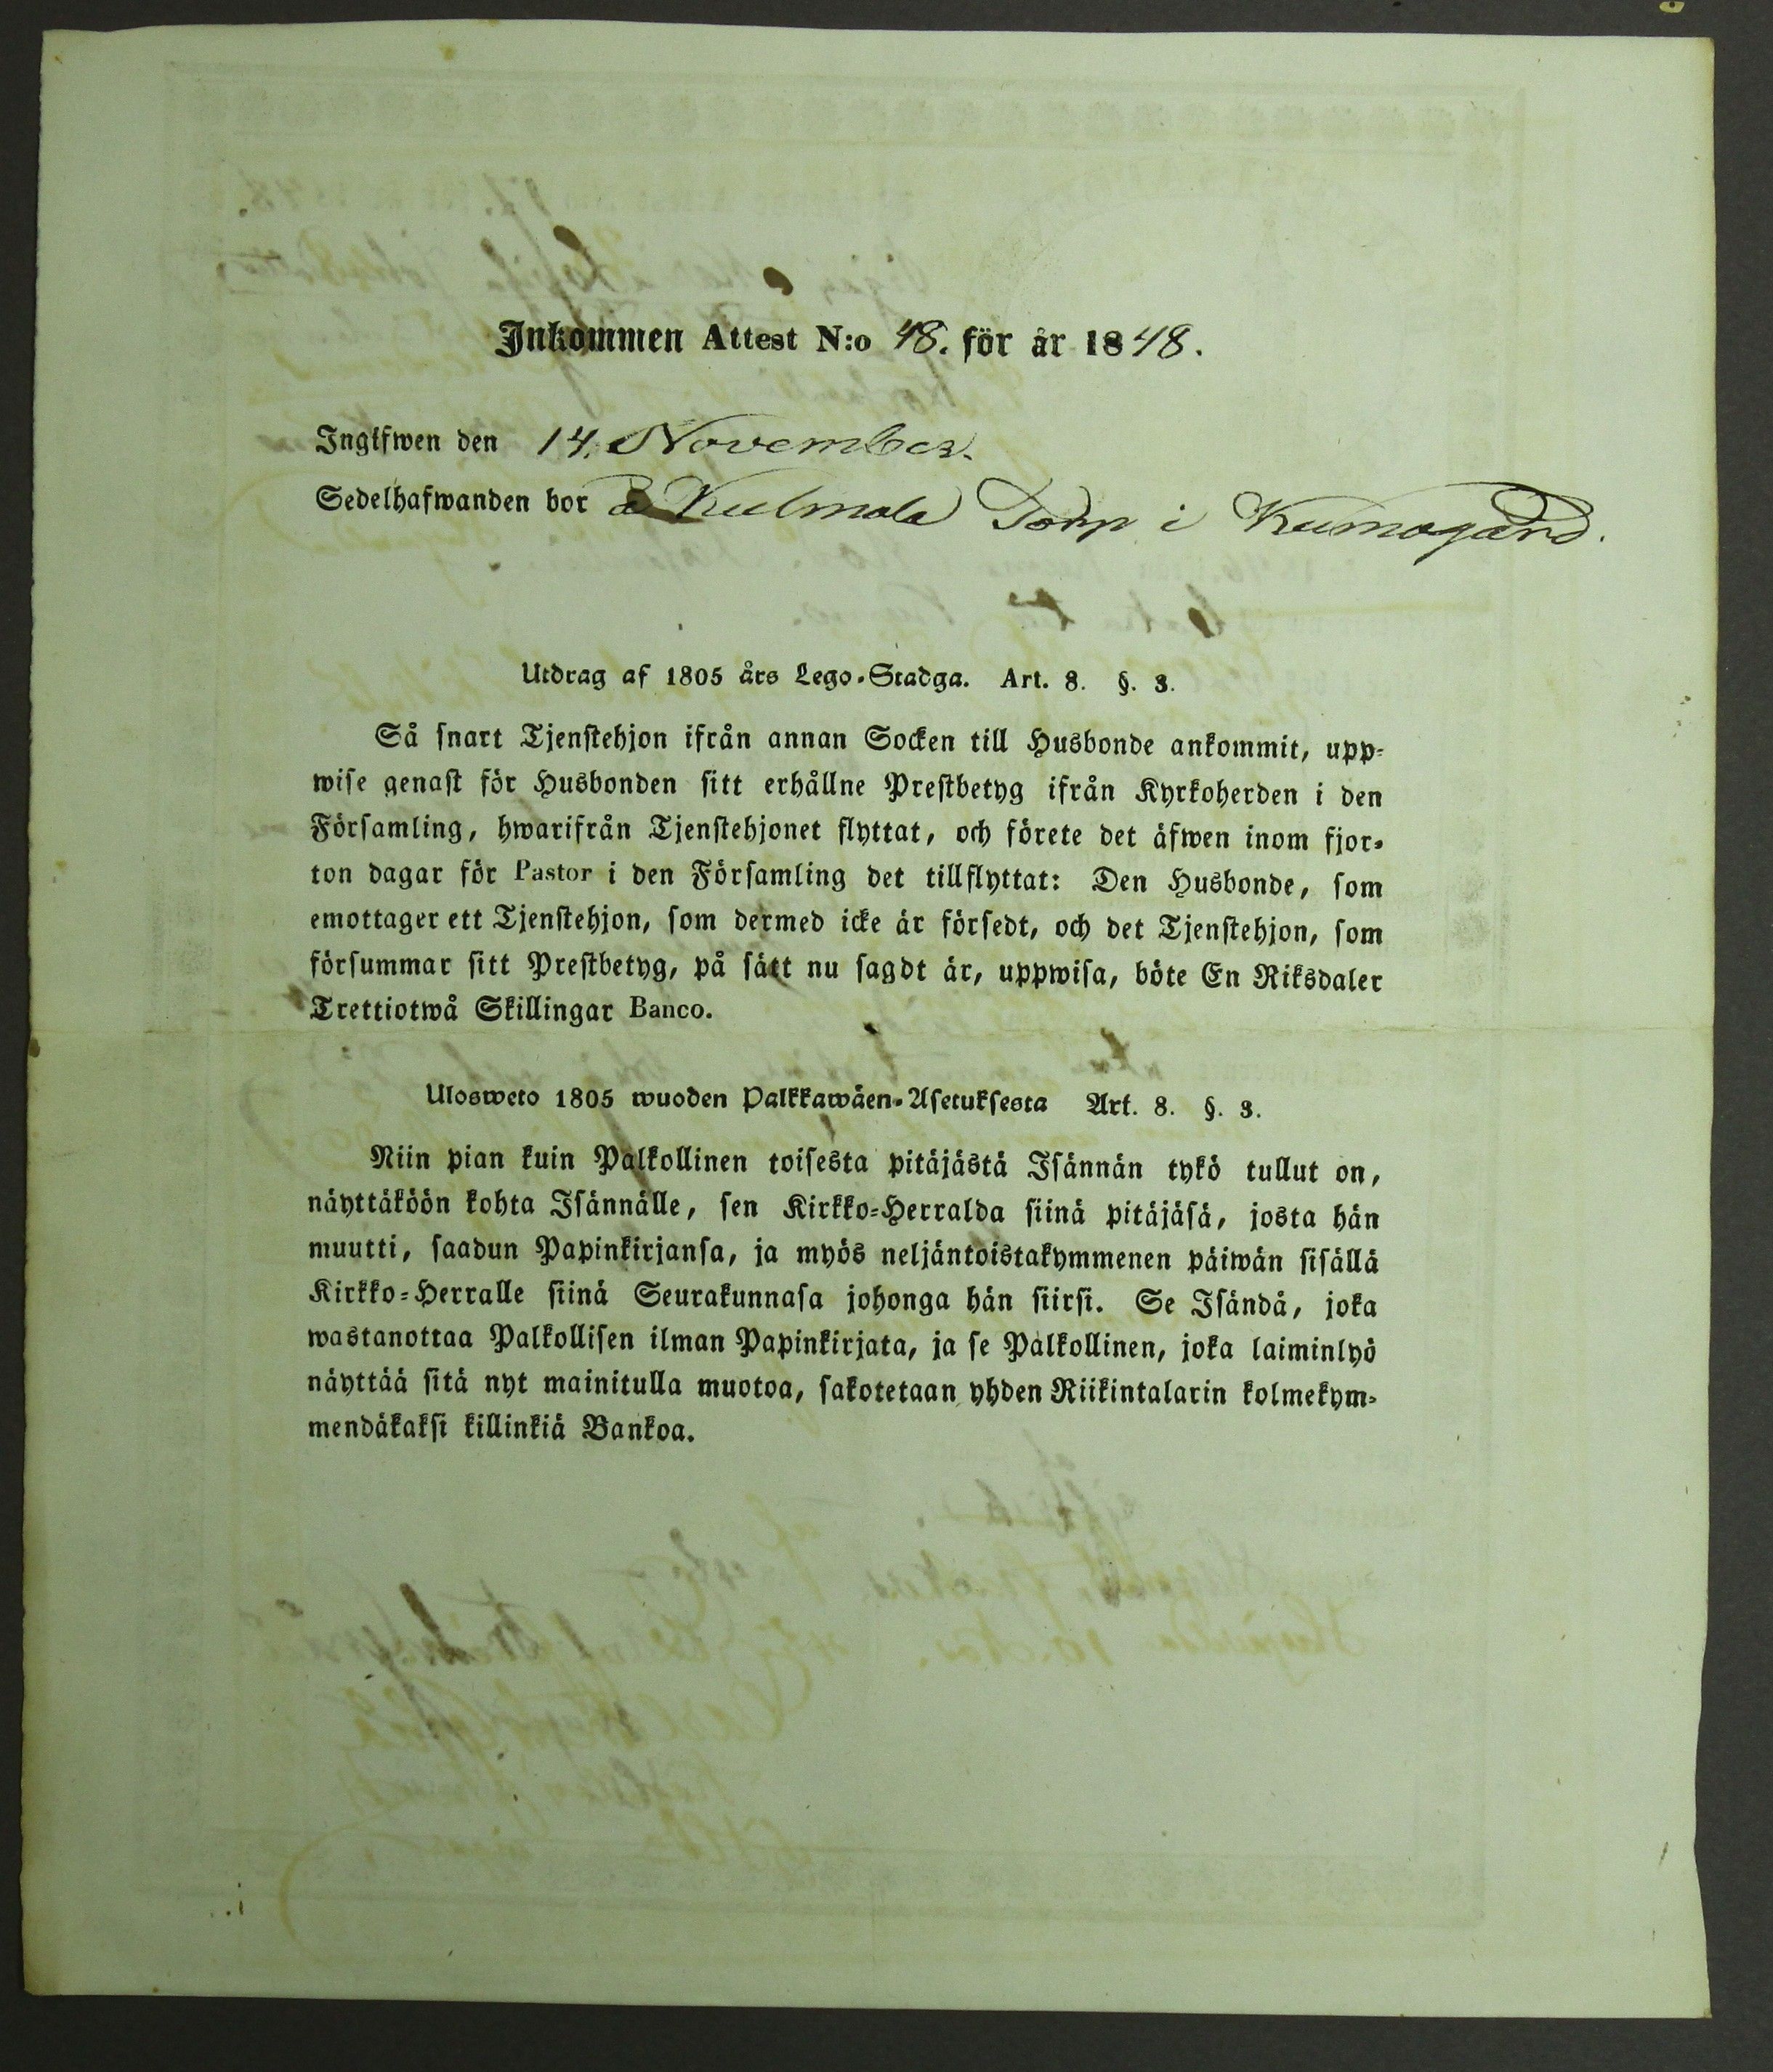 Inkommen Attest N:o 48. för år 1848.
Ingifwen den 14. November.
Sedelhafwanden bor å Kulmala Torp i Kumogård.
Utdrag af 1805 års Lego-Stadga. Art. 8. §. 3.
Så snart Tjenstehjon ifrån annan Socken till Husbonde ankommit, upp-
wise genast för Husbonden sitt erhållne Prestbetyg ifrån Kyrkoherden i den
Församling, hwarifrån Tjenstehjonet flyttat, och förete det äfwen inom fjor-
ton dagar för Pastor i den Församling det tillflyttat: Den Husbonde, som
emottager ett Tjenstehjon, som dermed icke är försedt, och det Tjenstehjon, som
försummar sitt Prestbetyg, på sätt nu sagdt är, uppwisa, böte En Riksdaler
Trettiotwå Skillingar Banco.
Ulosweto 1805 wuoden Palkkawäen-Asetuksesta Art. 8. §. 3.
Niin pian kuin Palkollinen toisesta pitäjästä Isännän tykö tullut on,
näyttäköön kohta Isännälle, sen Kirkko-Herralda siinä pitäjäsä, josta hän
muutti, saadun Papinkirjansa, ja myös neljäntoistakymmenen päiwän sisällä
Kirkko-Herralle siinä Seurakunnasa johonga hän siirsi. Se Isändä, joka
wastanottaa Palkollisen ilman Papinkirjata, ja se Palkollinen, joka laiminlyö
näyttää sitä nyt mainitulla muotoa, sakotetaan yhden Riikintalarin kolmekym-
mendäkaksi killinkiä Bankoa.